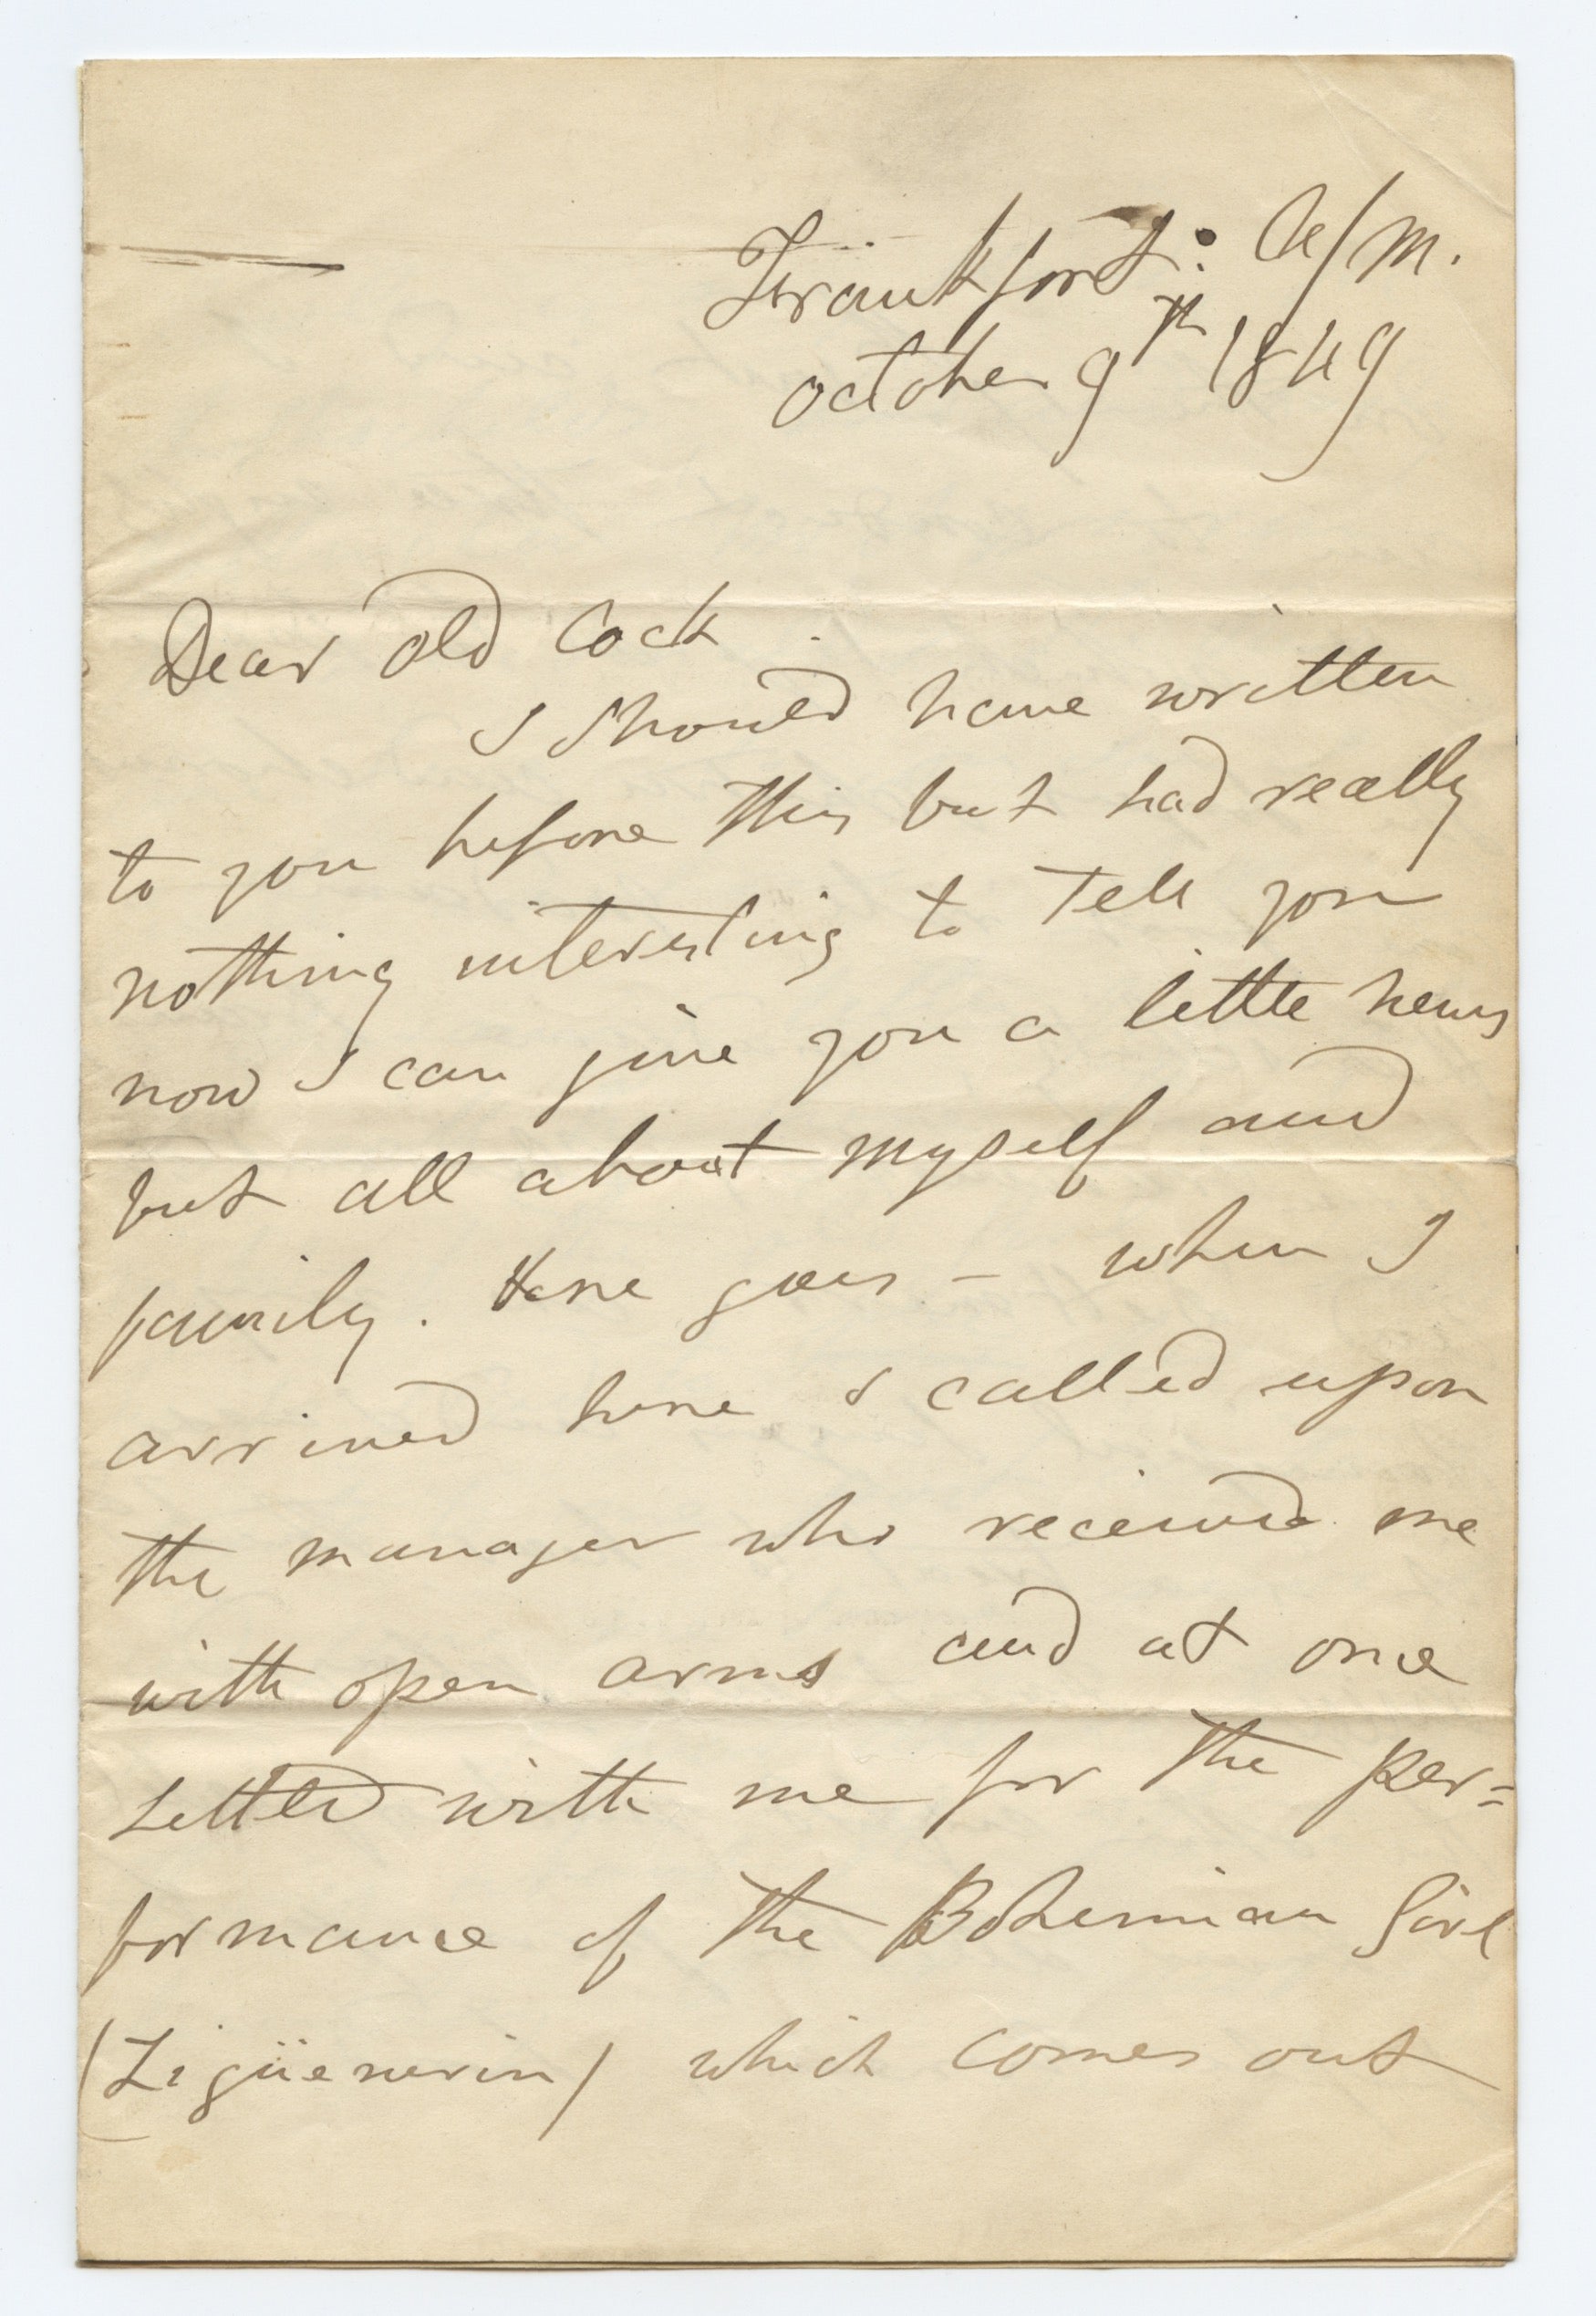 Frankfort: A/M.
October 9th 1849
Dear Old Cock.
I should have written
to you before this but had really
nothing interesting to tell you
now I can give you a little news
but all about myself and
family. Here goes - when I
arrived here I called upon
the manager who received me
with open arms and at once
settled with me for the per=
formance of the Bohemian Girl
(Zigüenerin) which comes out